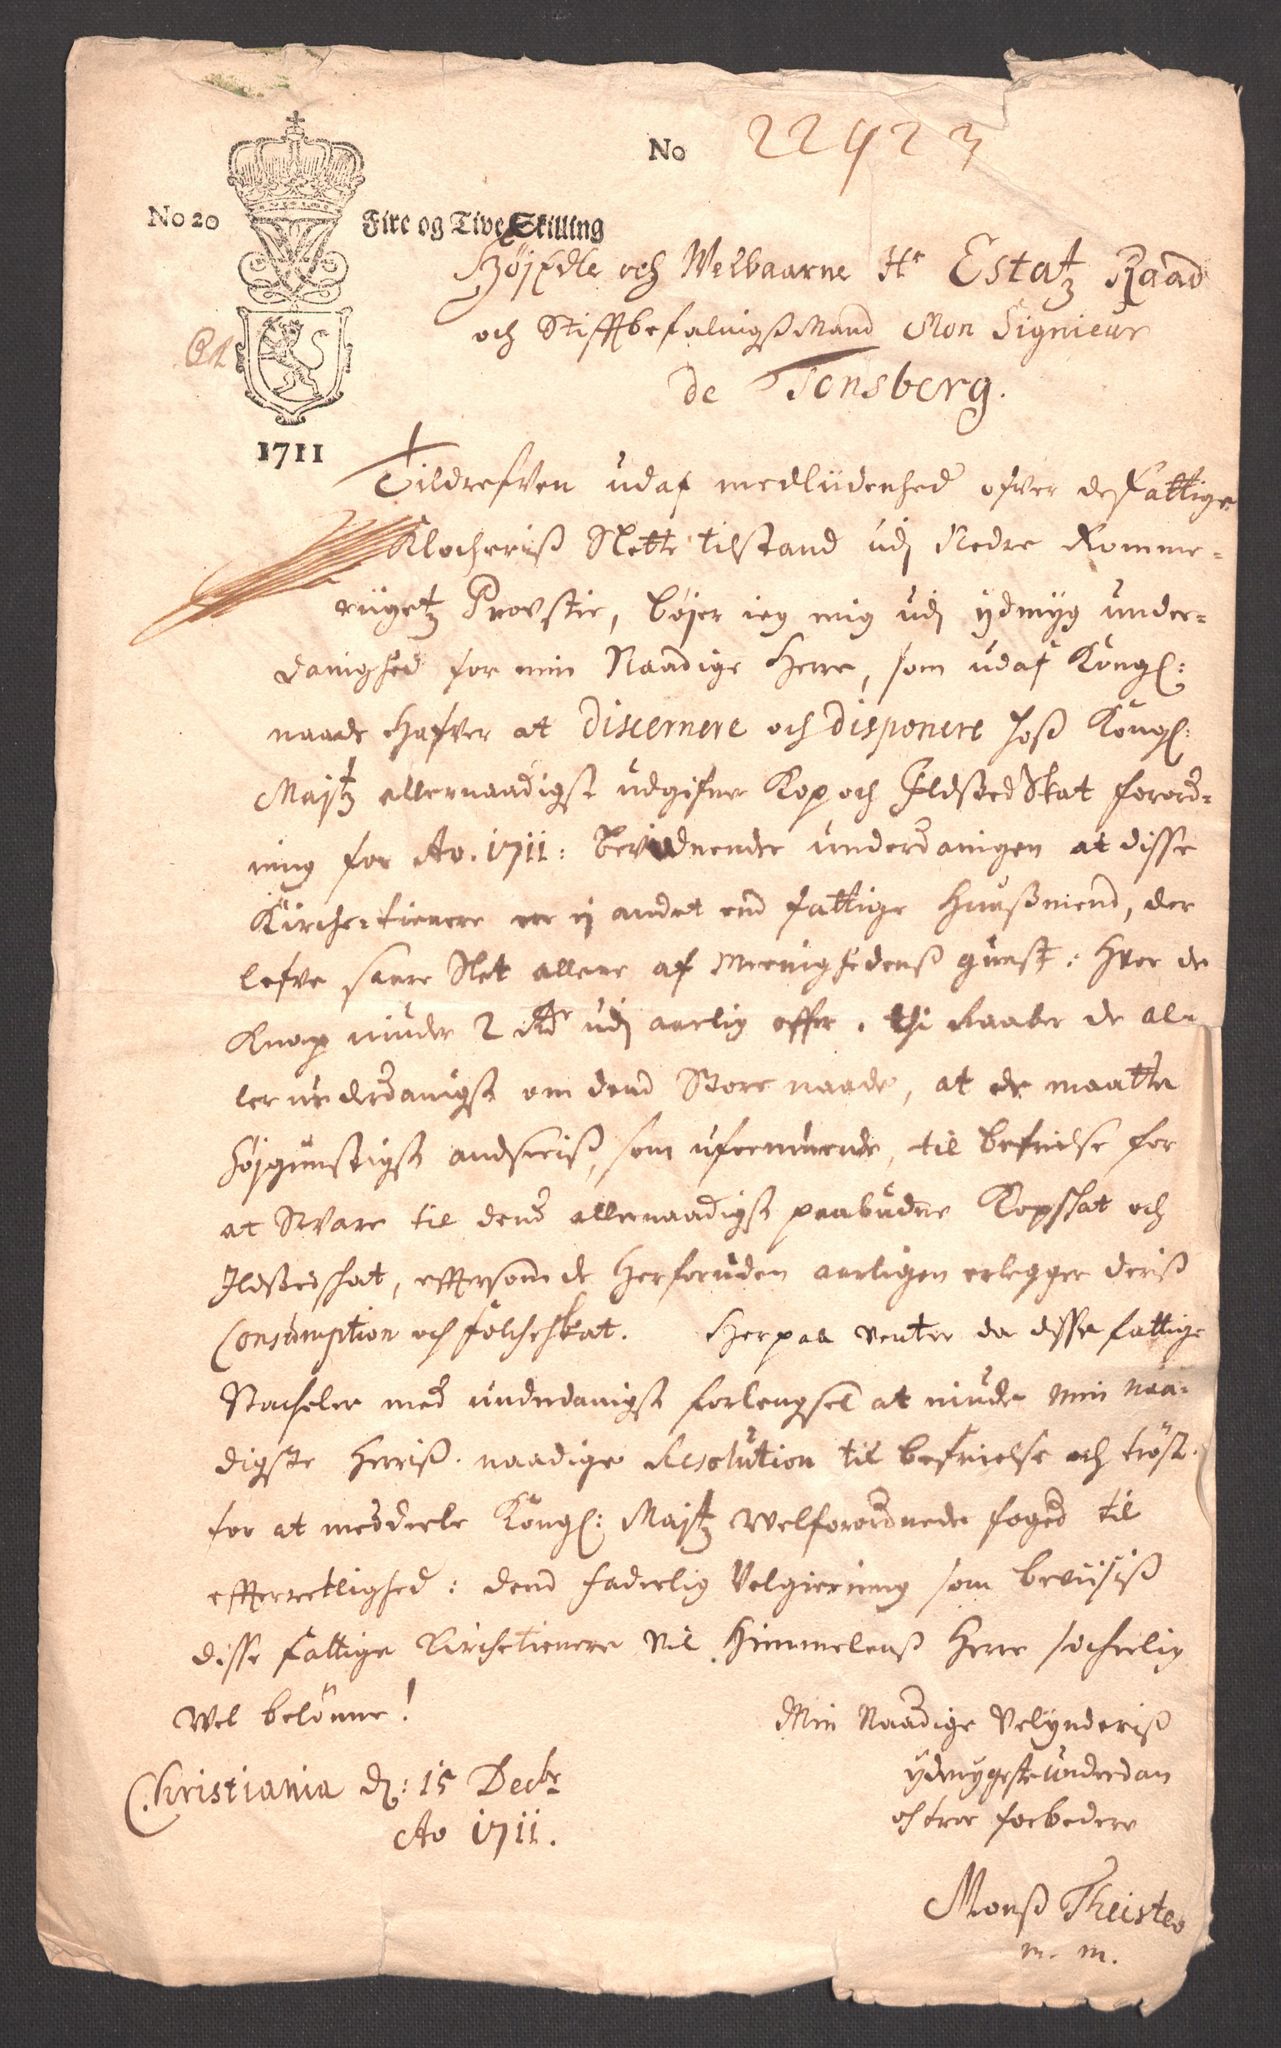 No 22923
No 20 Fire og Tive Skilling
Højedle och Welbaarne Hr Estatz Raad
och Stiftbefalingsmand Mon Signieur
de Tonsberg.
1711
Tildrefven udaf medliidenhed ofver de fattige
Klocheriss Slette tilstand udj Nedre Romme-
riigetz Provstie, bøjer ieg mig udj ydmyg under-
danighed for min Naadige Herre, som udaf Kongl:
naade hafver at discernere och disponere hoss Kongl:
Majtz allernaadigst udgifne Kop och Ildsted Skat forord-
ning for Ao. 1711: bevidnende underdanigen at disse
Kirche-tienere er ej andet end fattige Huussmend, der
lefve saare Slet allene af Meenighedenss gunst: hvor de
Knap niuder 2 Rdr udj aarlig offer. thi Raaber de al-
ler underdanigst om dend Store naade, at de maatte
højgunstigst andseeiss, som uformuende, til befrielse for
at Svare til dend allernaadigst paabudne Kopskat och
Ildstedskat, effersom de herforuden aarligen erlegger deriss
Consumption och folcheskat. Herpaa venter da disse fattige
Stacheler med underdanigst forlengsel at niude min naa-
digste Herriss naadige Resolution til befrielse och trøst.
for at meddeele Kongl: Majtz Welforordnede foged til
efferretlighed: dend faderlig Velgierning som beviisiss
disse fattige Kirchetienere vil Himmelenss Herre
Wel belønne!
Min Naadige Velynderiss
ydmygste underdan
och troe forbedere
Christiania d: 15 Decbr
Ao 1711.
Monss Theiste
m. m.